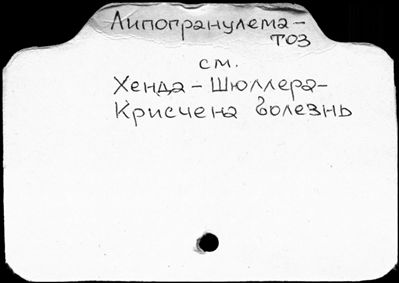 Липогранулема-
тоз
см.
Хенда-Шюллера-
Крисчена болезнь